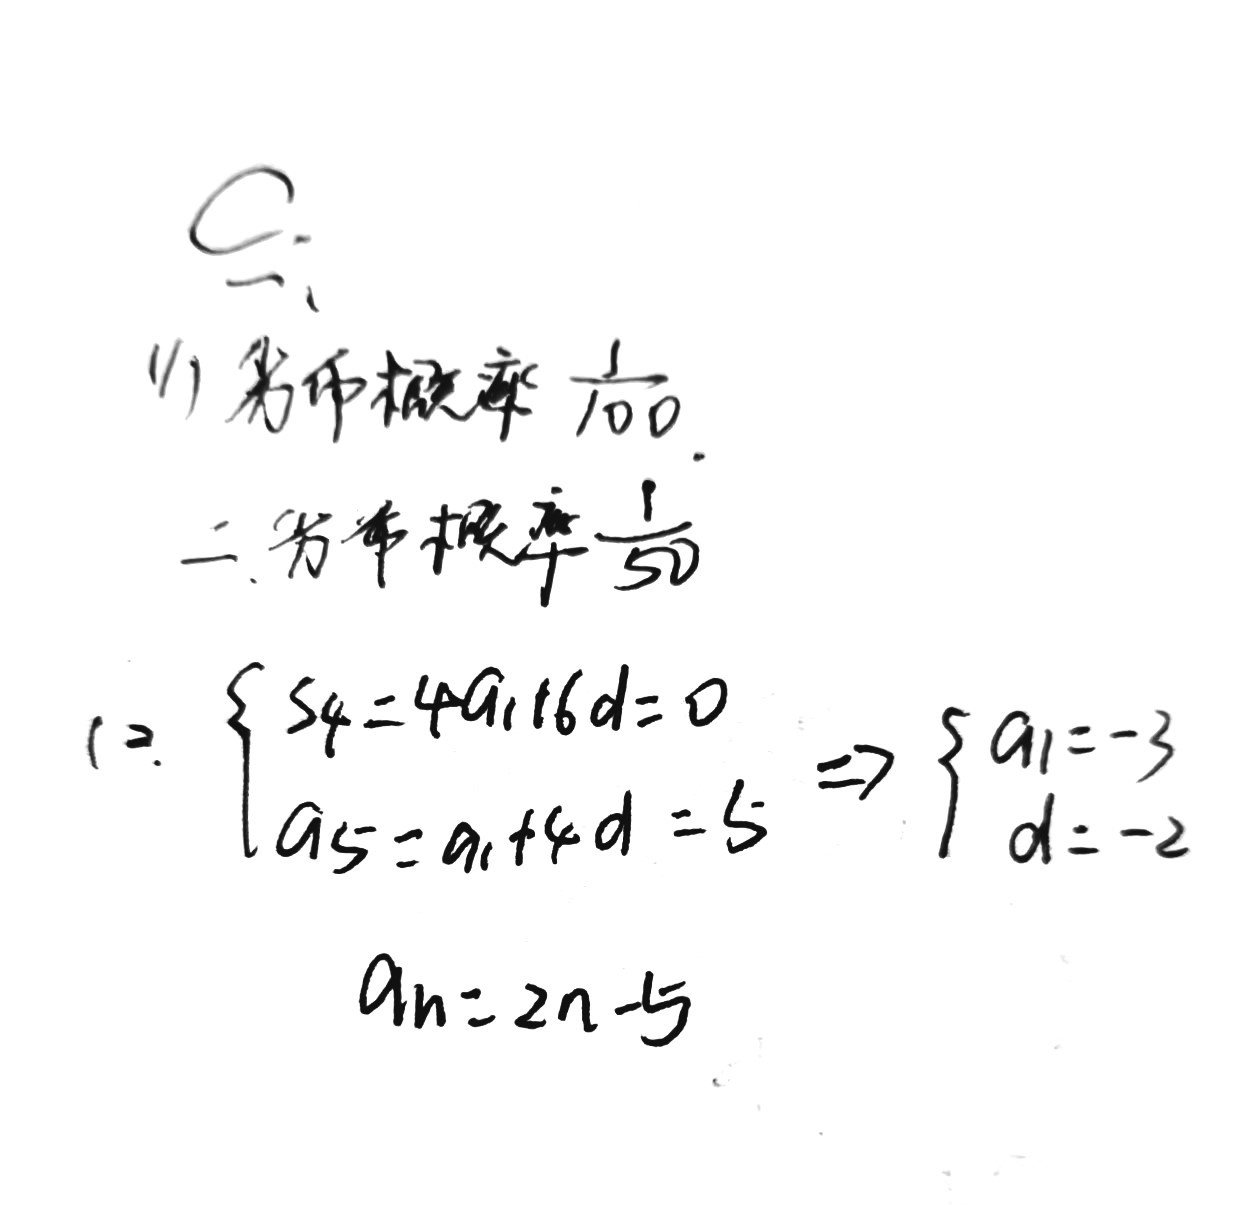 C.
一、
(1) 劣币概率 1/100.
二、劣币概率 1/50
(2. { S4=4a1+6d=0 ⇒ { a1=-3
a5=a1+4d=5 d=-2
an=2n-5